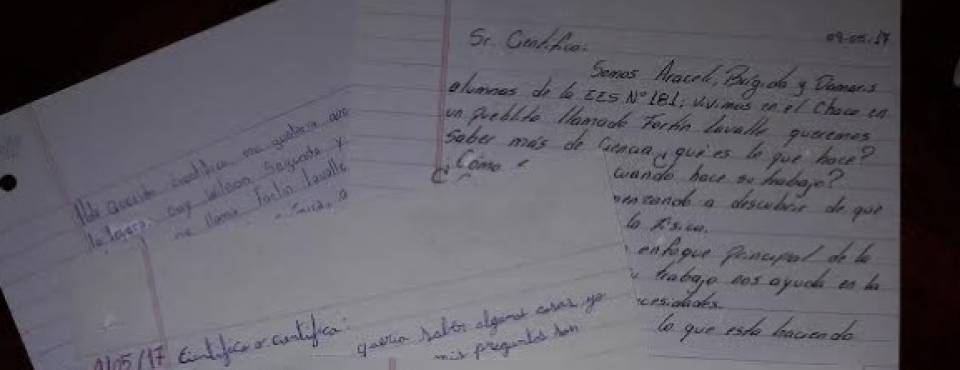 09-05-17
Sr. Científico:
Somos Araceli, Brigida y Damaris
alumnas de la EES Nº 181; vivimos en el Chaco en
un pueblito llamado Fortín Lavalle queremos
saber más de Ciencia ¿qué es lo que hace?
¿Cómo
cuando hace su trabajo?
menzando a descubrir de que
la física.
enfoque principal de la
trabajo nos ayuda en la
cesidades.
lo que esta haciendo
Hola querido científico, me gustaria
soy Wilson Segundo y
me llamo Fortín Lavalle
a
/05/17 Científico o científica:
queria saber algunas cosas, yo
mis preguntas son